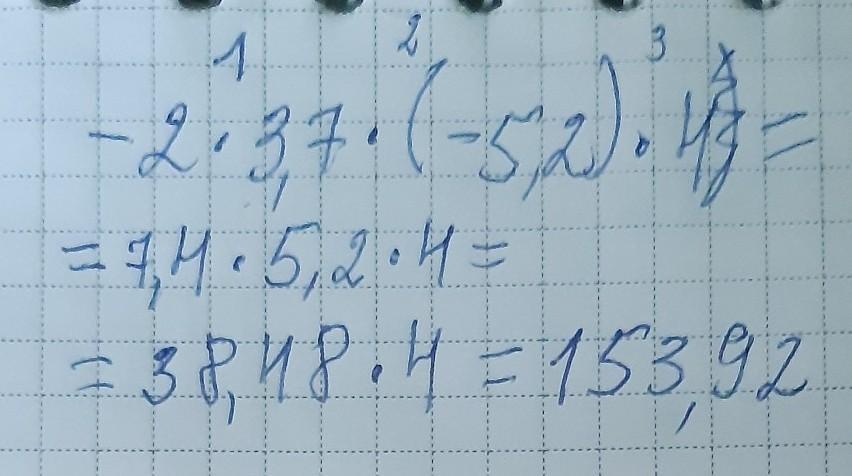 1 2 3
-2 · 3,7 · (-5,2) · 4 =
= 7,4 · 5,2 · 4 =
= 38,48 · 4 = 153,92